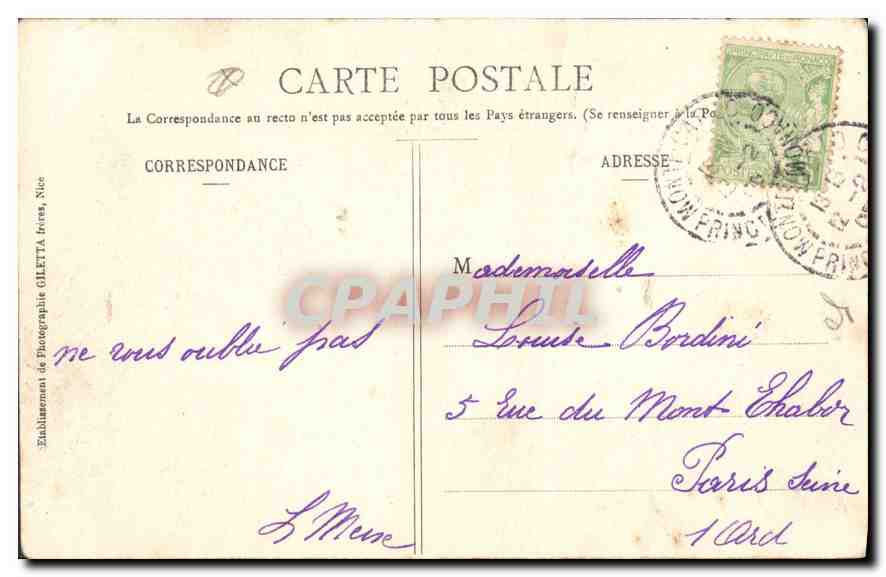 CARTE POSTALE
La Correspondance au recto n'est pas acceptée par tous les Pays étrangers. (Se renseigner à la Po
CORRESPONDANCE
ADRESSE
Etablissement de Photographie GILETTA frères, Nice
ne vous oublie pas
Mademoiselle
Louise Bordini
5 Rue du Mont Thabor
Paris Seine
1 Ard
5
CPAPHIL
MONACO
PRINC